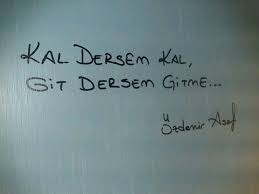 KAL DERSEM KAL,
GİT DERSEM GİTME...
Özdemir Asaf